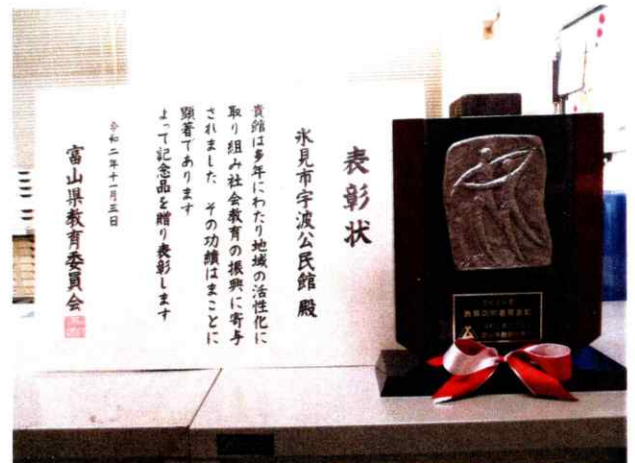 表彰状
氷見市宇波公民館 殿
貴館は多年にわたり地域の活性化に
取り組み社会教育の振興に寄与
されました その功績はまことに
顕著であります
よって記念品を贈り表彰します
令和二年十一月三日
富山県教育委員会